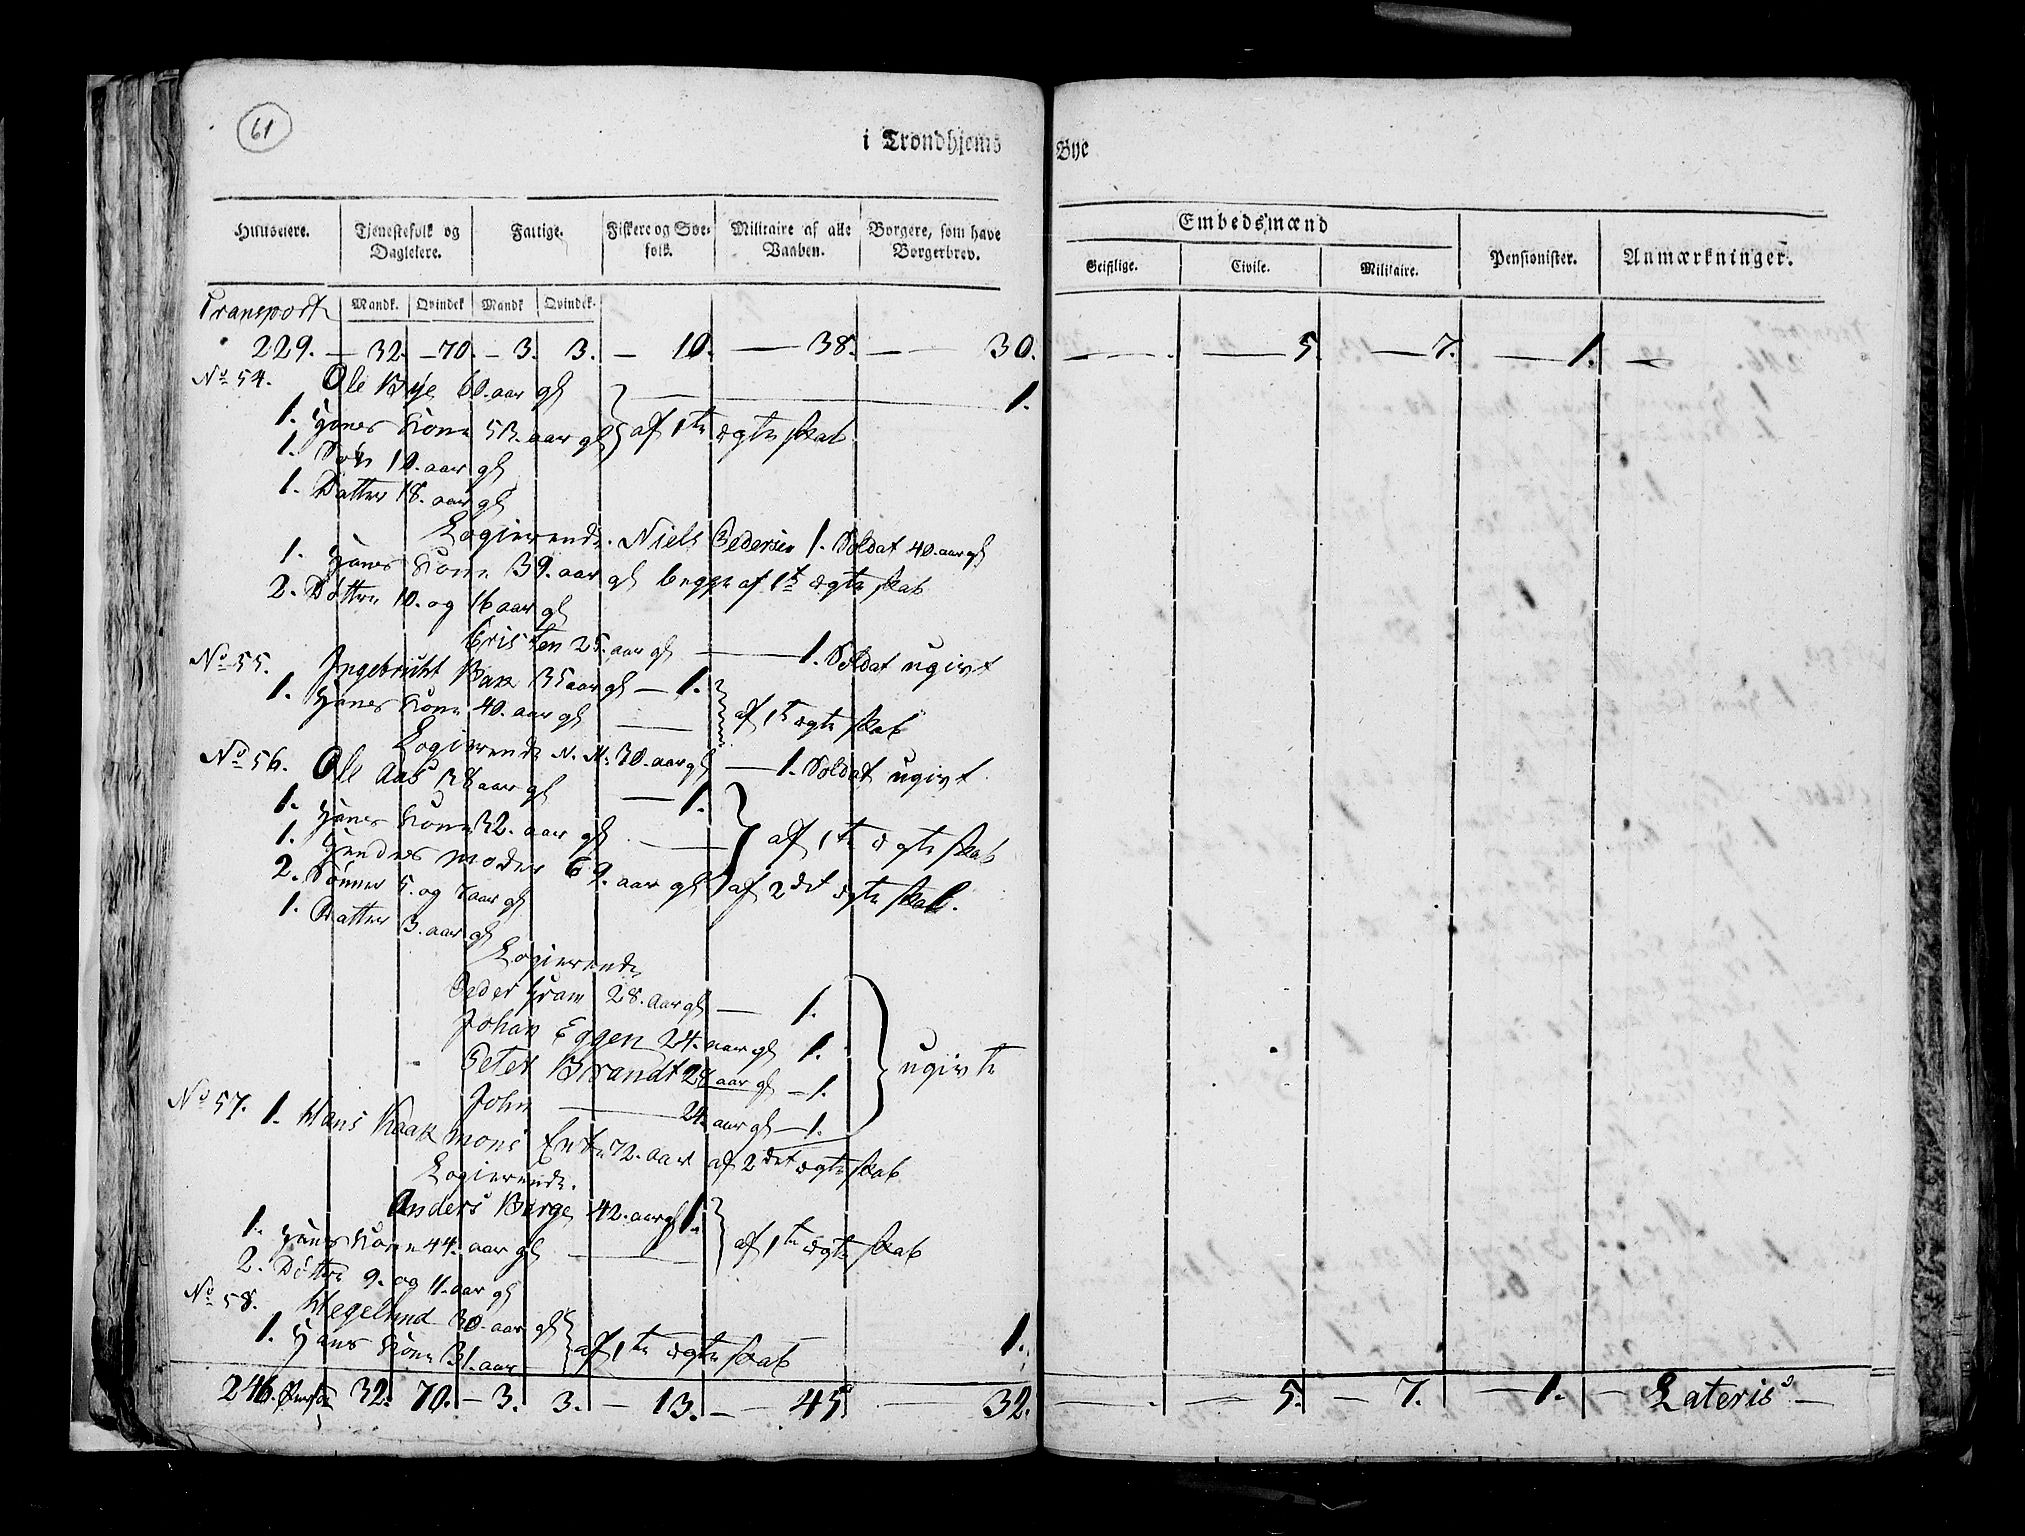 61
i Trondhjems Bye
Huuseiere. Tjenestefolk og Dagleiere. Fattige. Fiskere og Søefolk. Militaire af alle Vaaben. Borgere, som have Borgerbrev. Embedsmænd Pensionister. Anmærkninger.
Geistlige. Civile. Militaire.
Mandk. Qvindek Mandk Qvindek.
Transport
229. — 32. — 70. — 3. 3. — 10. — 38. — 30. — . — 5. — 7. — 1. —
No 54. Ole Bye 60. aar gl 1.
1. Hanes Kone 53. aar gl } af 1te ægteskab
1. Søn 10. aar gl
1. Datter 18. aar gl
Logierende. Niels Pedersen 1. Soldat 40. aar gl
1. Hanes Kone 39. aar gl begge af 1te ægteskab
2. Døttre 10. og 16 aar gl
Cristen 25. aar gl — 1. Soldat ugivt
No 55. Ingebricht Bak 35 aar gl — 1.
1. Hanes Kone 40. aar gl — } af 1te ægteskab
Logierende N. N. 30. aar gl — 1. Soldat ugivt.
No 56. Ole Aas 38 aar gl — 1.
1. Hanes Kone 32. aar gl — } af 1te ægteskab
1. Hendes moder 69. aar gl af 2det ægteskab.
2. Sønner 5. og 8 aar gl
1. Datter 3. aar gl
Logierende
Peder Fram 28. aar gl — 1.
Johan Eggen 24. aar gl 1.
Peter Brandt 28 aar gl — 1. } ugivte
John — 24. aar gl — 1.
No 57. 1. Hans Kaarmons Enke 72. aar af 2det ægteskab
Logierende.
Anders Berge 42. aar gl 1.
1. Hanes Kone 44. aar gl — } af 1te ægteskab
2. Døttre 9. og 11. aar gl
No 58. Hegelund 30. aar gl 1.
1. Hanes Kone 31. aar } af 1te ægteskab
246. 32. 70. — 3. 3. — 13. — 45 — 32. — . — 5. — 7. — 1. — Lateris —